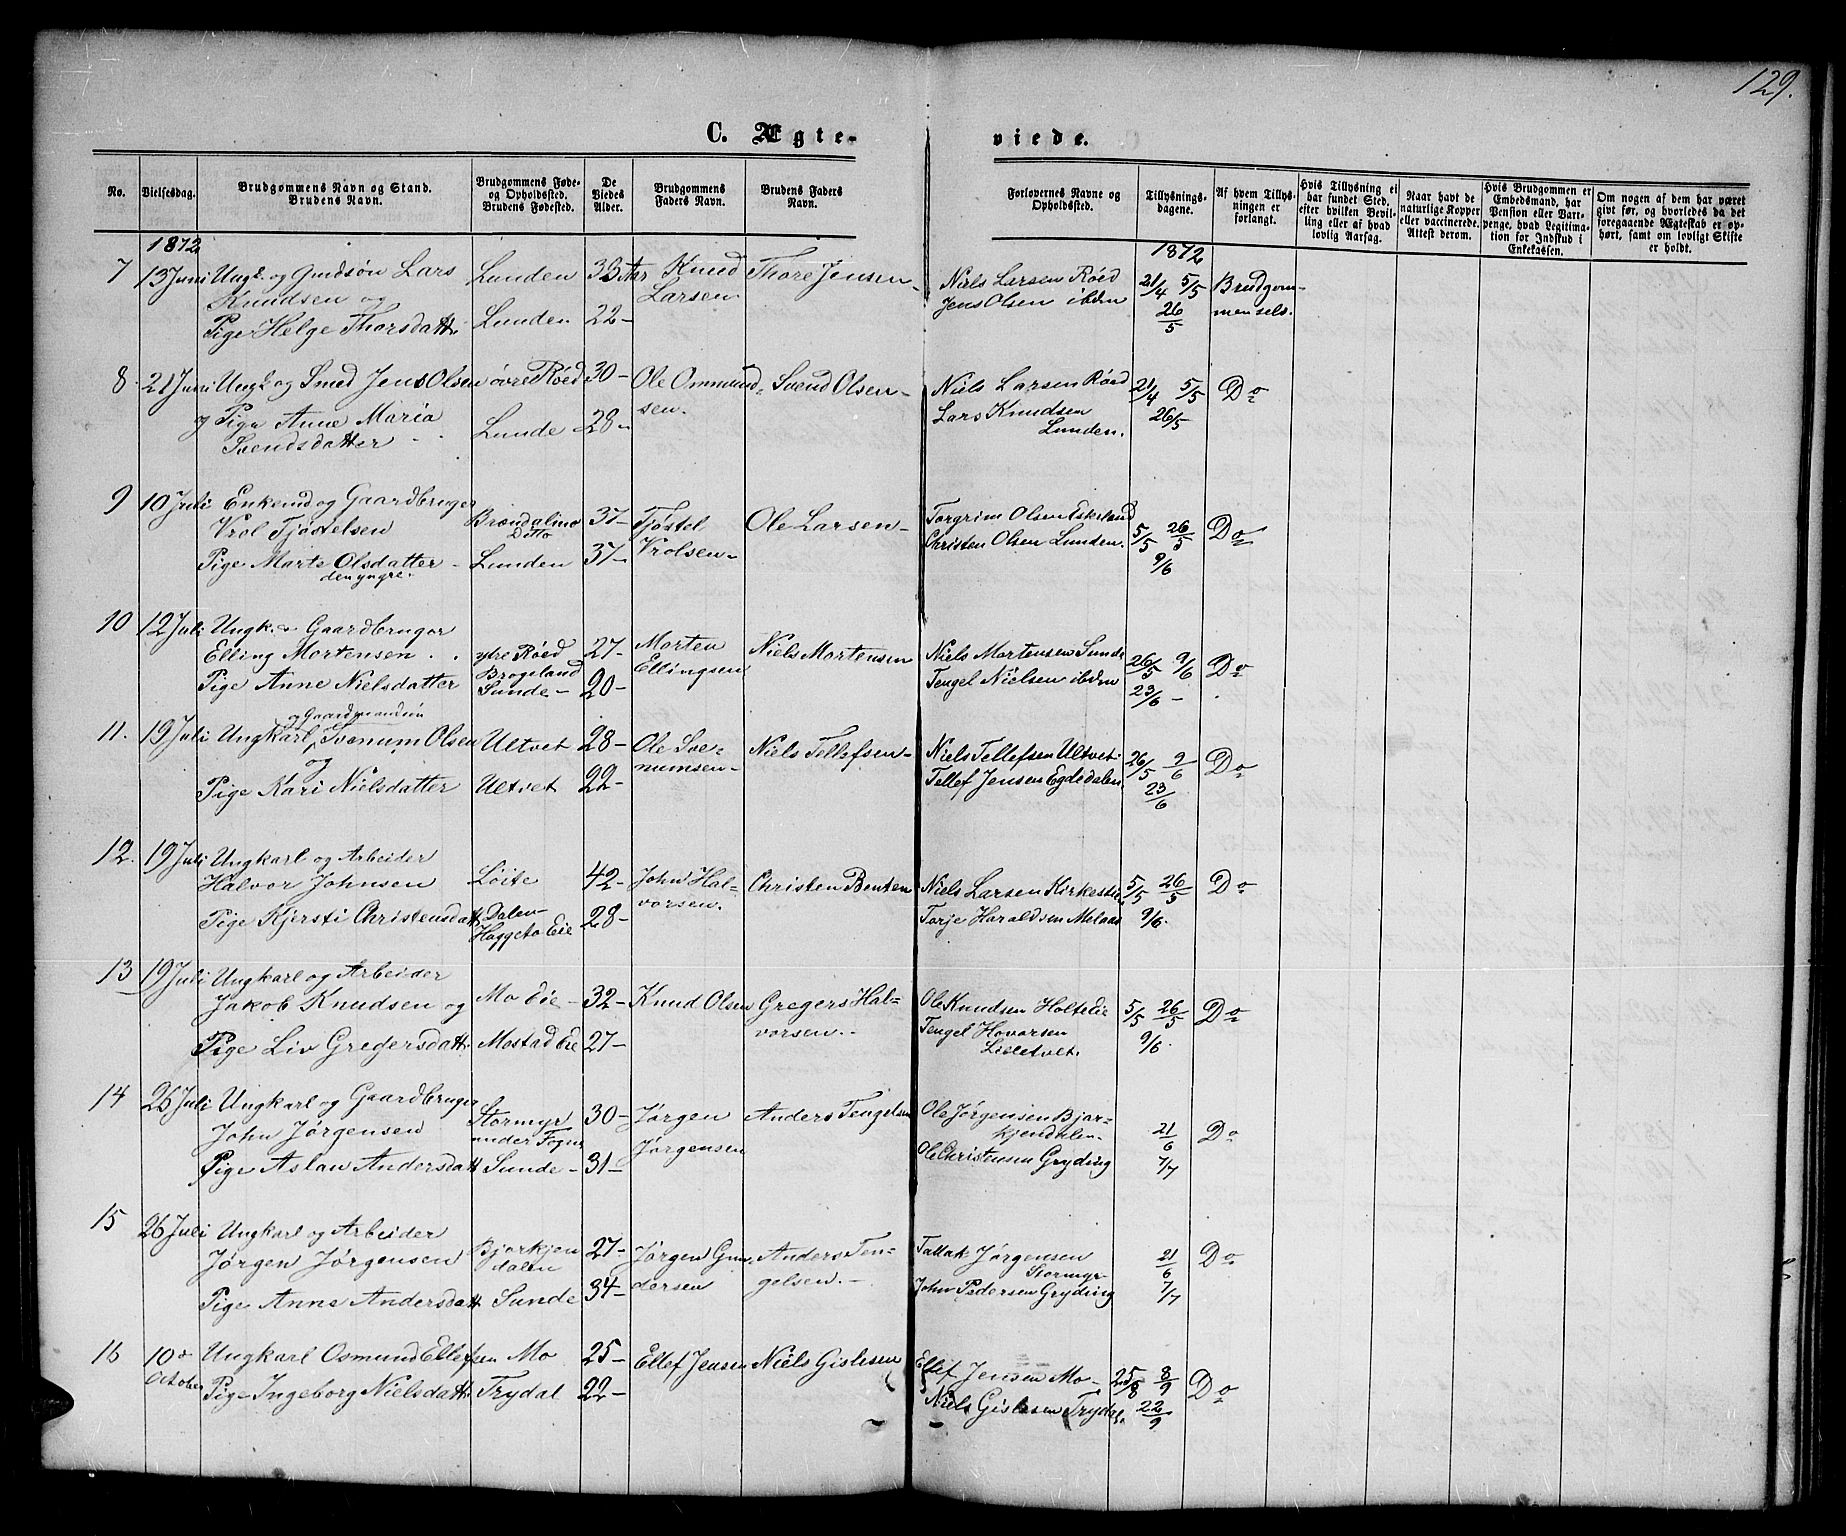 129.
C. Ægte- viede.
No.
Vielsesdag.
Brudgommens Navn og Stand.
Brudens Navn.
Brudgommens Føde-
og Opholdsted.
Brudens Fødested.
De
Viedes
Alder.
Brudgommens
Faders Navn.
Brudens Faders
Navn.
Forlovernes Navne og
Opholdsted.
Tillysnings-
dagene.
Af hvem Tillys-
ningen er
forlangt.
Hvis Tillysning ei
har fundet Sted,
efter hvilken Bevil-
ling eller af hvad
lovlig Aarsag.
Naar havt de
naturlige Kopper
eller vaccinerede.
Attest derom.
Hvis Brudgommen er
Embedsmand, har
Pension eller Vart-
penge, hvad Legitima-
tion for Indskud i
Enkekassen.
Om nogen af dem har været
gift før, og hvorledes da det
foregaaende Ægteskab er op-
hørt, samt om lovligt Skifte
er holdt.
1872 1872
7 13 Juni Ungk. og Gmdsøn Lars Lunden 33 Aar Knud Thore Jensen- Niels Larsen Røed 21/4 5/5 Brudgom-
Knudsen og Larsen Jens Olsen ibden 26/5 mensels.
Pige Helge Thorsdatt. Lunden 22-
8. 21 Juni Ungk. og Smed Jens Olsen øvre Røed 30- Ole Ommund- Svend Olsen- Niels Larsen Røed 21/4 5/5 Do
og Pige Anne Maria Lunde 28- sen. Lars Knudsen 26/5
Svendsdatter Lunden.
9 10 Juli Enkemd og Gaardbruger Brændalmo 37- Tjøstel Ole Larsen- Torgrim Olsen Eskeland 5/5 26/5 Do
Vrol Tjøstelsen Ditto Vrolsen- Christen Olsen Lunden. 9/6
Pige Marte Olsdatter - Lunden 37-
den yngre.
10 12 Juli Ungk. & Gaardbruger
Elling Mortensen . . ytre Røed 27- Morten Niels Mortensen Niels Mortensen Sunde 26/5 9/6 Do
Brogeland Ellingsen Tengel Nielsen ibden 23/6 -
Pige Anne Nielsdatter Sunde - 20-
og Gaardmandssøn
11. 19 Juli Ungkarl Svenum Olsen Ultvet 28- Ole Sve- Niels Tellefsen- Niels Tellefsen Ultvet 26/5 9/6 Do
og numsen- Tellef Jensen Egdedalen 23/6
Pige Kari Nielsdatter Ultvet 22-
12. 19 Juli Ungkarl og Arbeider
Halvor Johnsen Löite 42- John Hal- Christen Bentsen Niels Larsen 5/5 26/5 Do
vorsen. Torje Haraldsen 9/6.
Pige Kjersti Christensdatt. Dalen- 28-
Haggeto Eie
13 19 Juli Ungkarl og Arbeider
Jakob Knudsen og Mo Eie- 32- Knud Olsen Gregers Hal- Ole Knudsen 5/5 26/5 Do
vorsen.- Tengel Hovorsen 9/6.
Pige Liv Gregersdatt. Mostad Eie 27- Lisletvet.
14 26 Juli Ungkarl og Gaardbruger Stormyr 30- Jørgen Anders Tengelsen Ole Jørgensen Bjor-
John Jørgensen under Fogne Jørgensen kjendalen- 21/6 Do
Pige Aslau Andersdatt Sunde - 31- Ole Christensen Gryding 7/7
15 26 Juli Ungkarl og Arbeider
Jørgen Jørgensen Bjorkjen 27- Jørgen Gun- Anders Ten- Tallak Jørgensen 21/6 Do
dalen dersen gelsen.- Stormyr
Pige Anne Andersdatt Sunde 34- John Pedersen Gryding 7/7
16 10de Ungkarl Osmund Ellefsen Mo 25- Ellef Jensen Niels Gislesen Ellef Jensen Mo- 25/8 8/9 Do
October Pige Ingeborg Nielsdatt. Trydal 22- Niels Gislesen Trydal. 22/9